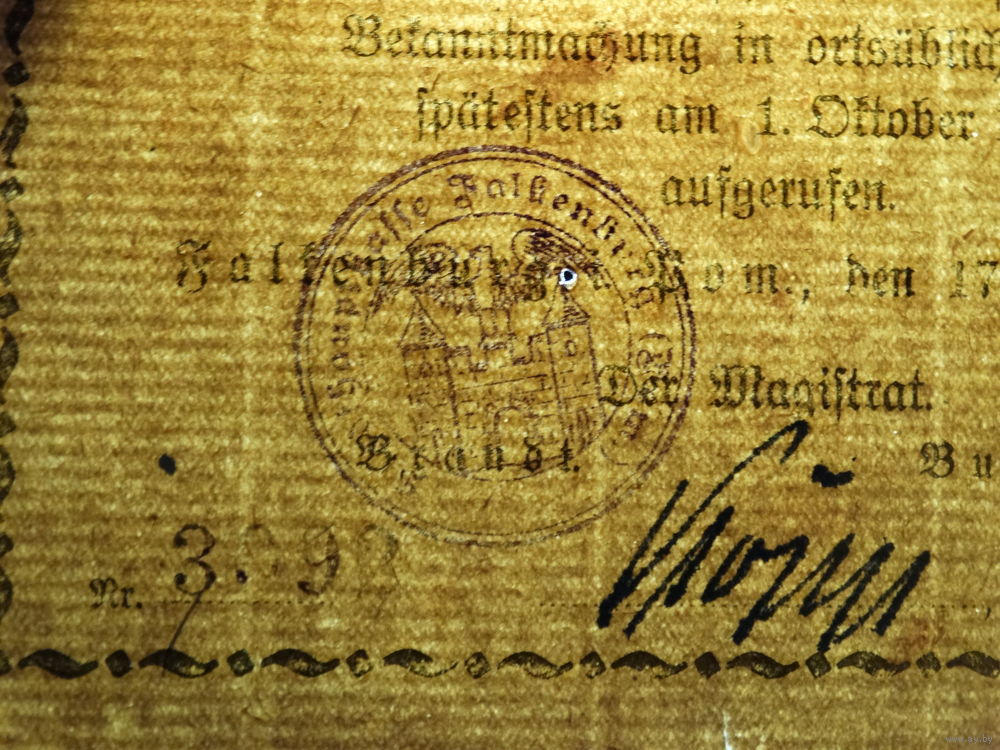 Bekanntmachung in ortsüblich
spätestens am 1. Oktober
aufgerufen.
Falkenburg i. Pom., den 17
Der Magistrat.
Brandt. Bu
Nr.
www.ay.by